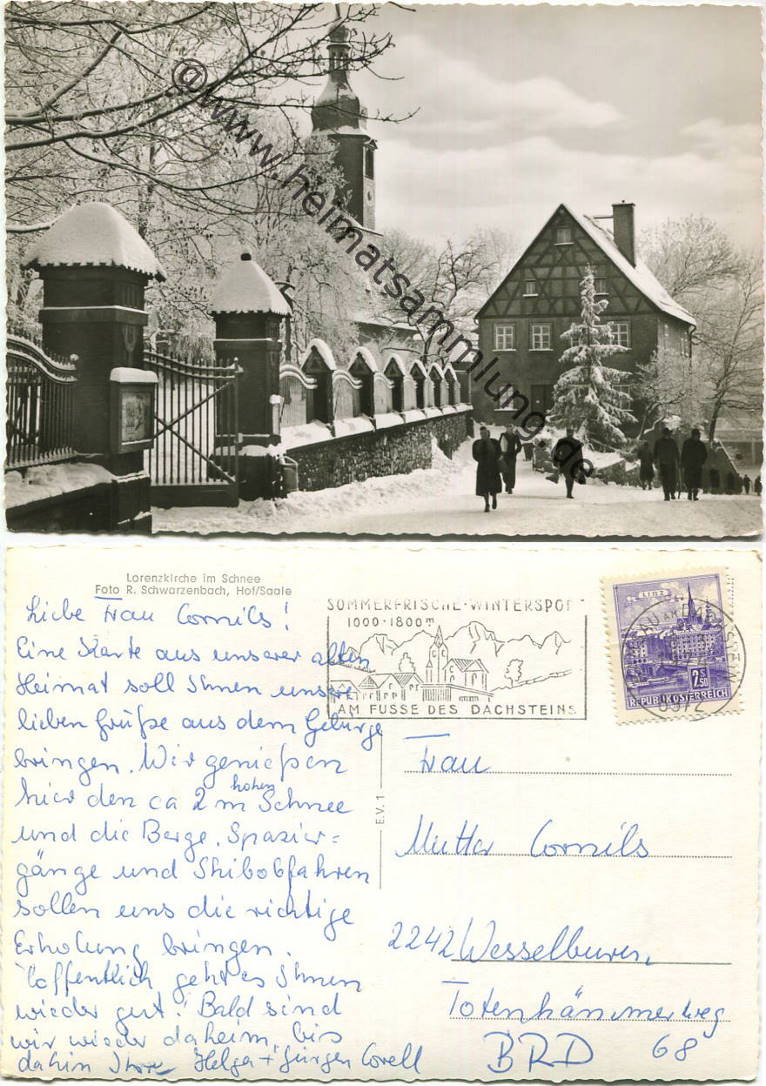 ©www.heimatsammlung.de
Lorenzkirche im Schnee
Foto R. Schwarzenbach, Hof/Saale
Liebe Frau Cornils!
Eine Karte aus unserer alten
Heimat soll Ihnen unsere
lieben Grüße aus dem Gebirge
bringen. Wir genießen
hier den ca 2 m hohen Schnee
und die Berge. Spazier=
gänge und Skibobfahren
sollen uns die richtige
Erholung bringen.
Hoffentlich geht es Ihnen
wieder gut. Bald sind
wir wieder daheim, bis
dahin Ihre Helga + Jürgen
SOMMERFRISCHE-WINTERSPO
1000-1800 m
AM FUSSE DES DACHSTEINS
LINZ
2.50
REPUBLIK ÖSTERREICH
E.V. 1
Frau
Mutter Cornils
2242 Wesselburen
Totenhämmerweg
BRD 68